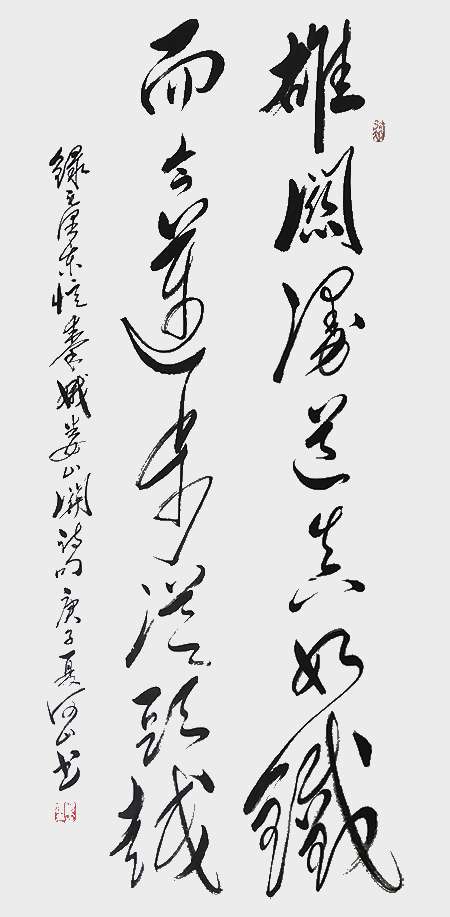 雄關漫道真如鐵
而今邁步從頭越
錄毛澤東憶秦娥娄山關詩句庚子夏河山书